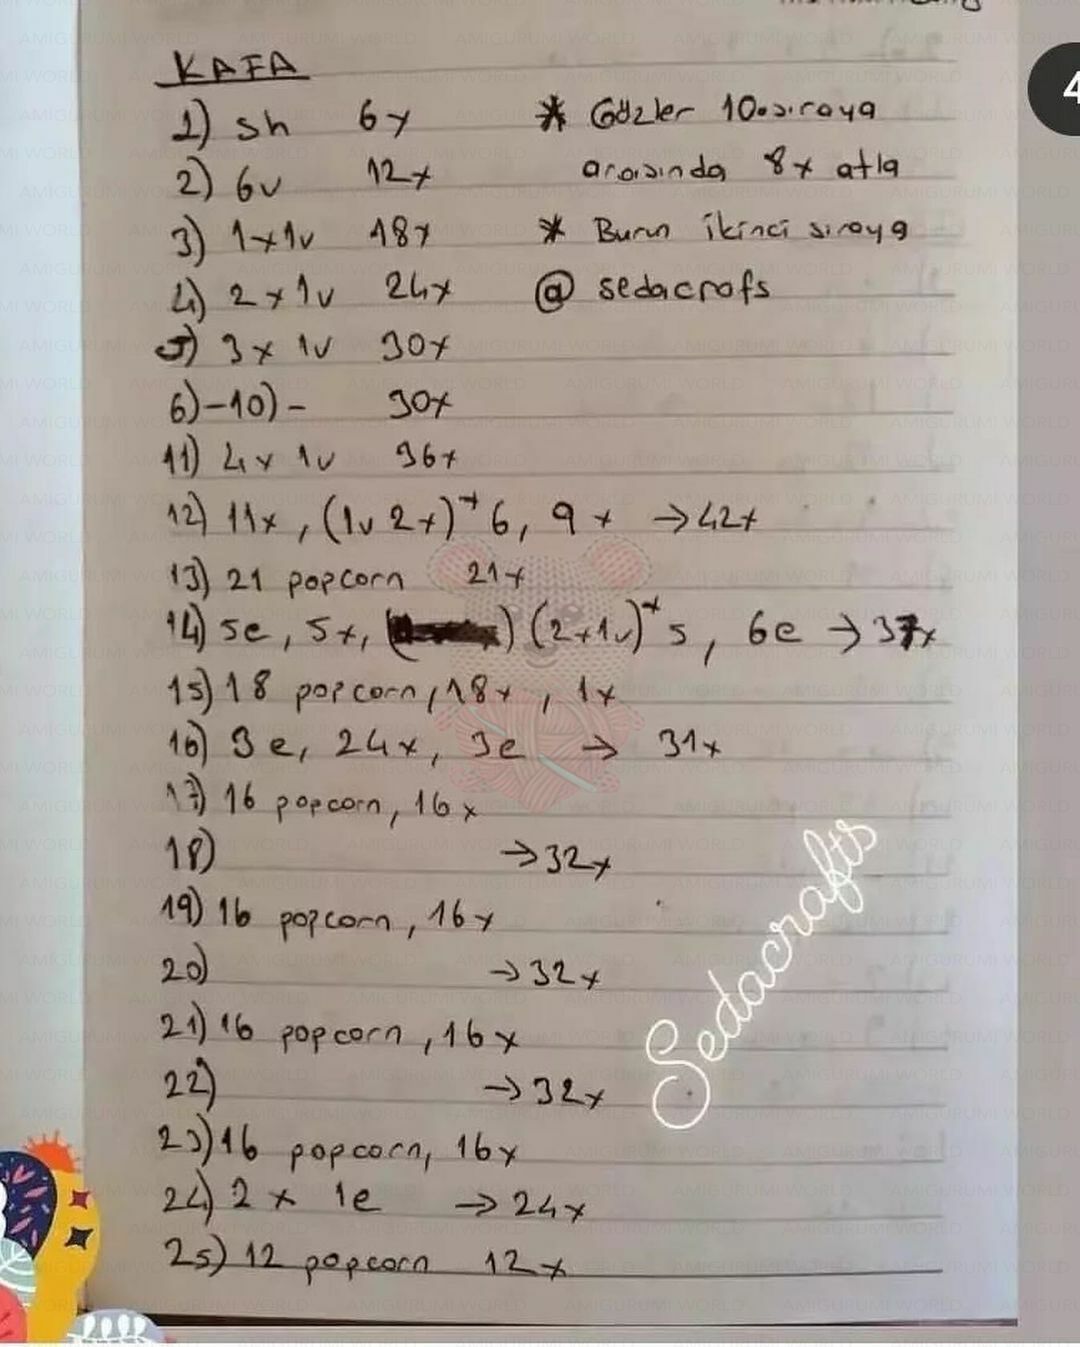 KAFA
1) sh 6x
2) 6v 12x
3) 1x1v 18x
4) 2x1v 24x
5) 3x 1v 30x
6)-10)- 30x
11) 4x 1v 36x
12) 11x, (1v 2x)*6, 9x →42x
13) 21 popcorn 21x
14) 5e, 5x, (2x1v)*5, 6e → 37x
15) 18 popcorn, 18x, 1x
16) 3e, 24x, 3e → 31x
17) 16 popcorn, 16x
18) →32x
19) 16 popcorn, 16x
20) →32x
21) 16 popcorn, 16x
22) →32x
23) 16 popcorn, 16x
24) 2x 1e → 24x
25) 12 popcorn 12x
* Gözler 10.sıraya
arasında 8x atla
* Burun ikinci sıraya
@ sedacrafs
Sedacrafts
4
AMIGURUMI WORLD